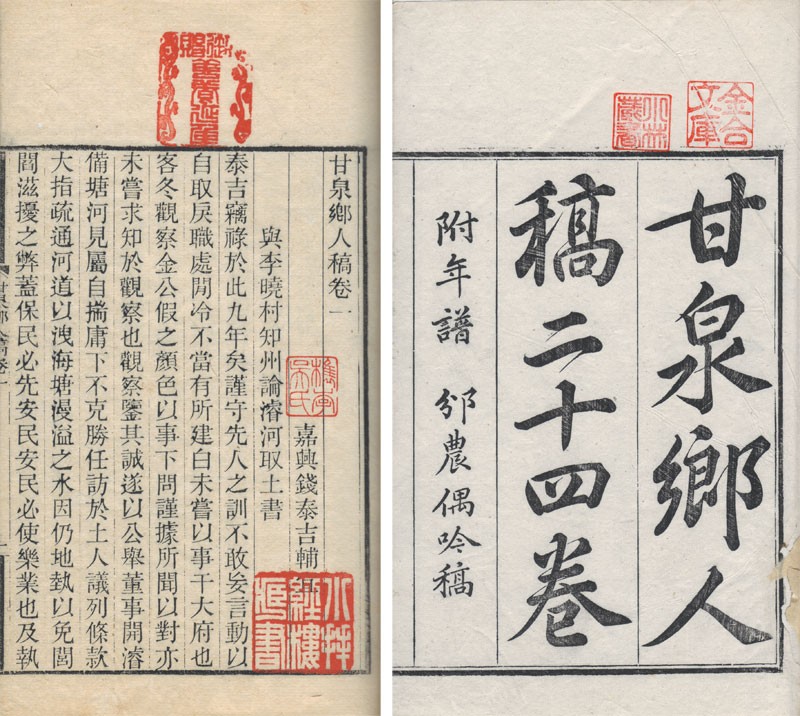 金合文庫
甘泉鄉人
稿二十四卷
附年譜 邠農偶吟稿
甘泉鄉人稿卷一
嘉興錢泰吉輔
與李曉村知州論濬河取土書
泰吉竊祿於此九年矣謹守先人之訓不敢妄言動以
自取戾職處閒冷不當有所建白未嘗以事干大府也
客冬觀察金公假之顏色以事下問謹據所聞以對亦
未嘗求知於觀察也觀察鑒其誠遂以公舉董事開濬
備塘河見屬自揣庸下不克勝任訪於土人議列條款
大指疏通河道以洩海塘漫溢之水因仍地埶以免閭
閻滋擾之弊蓋保民必先安民安民必使樂業也及埶